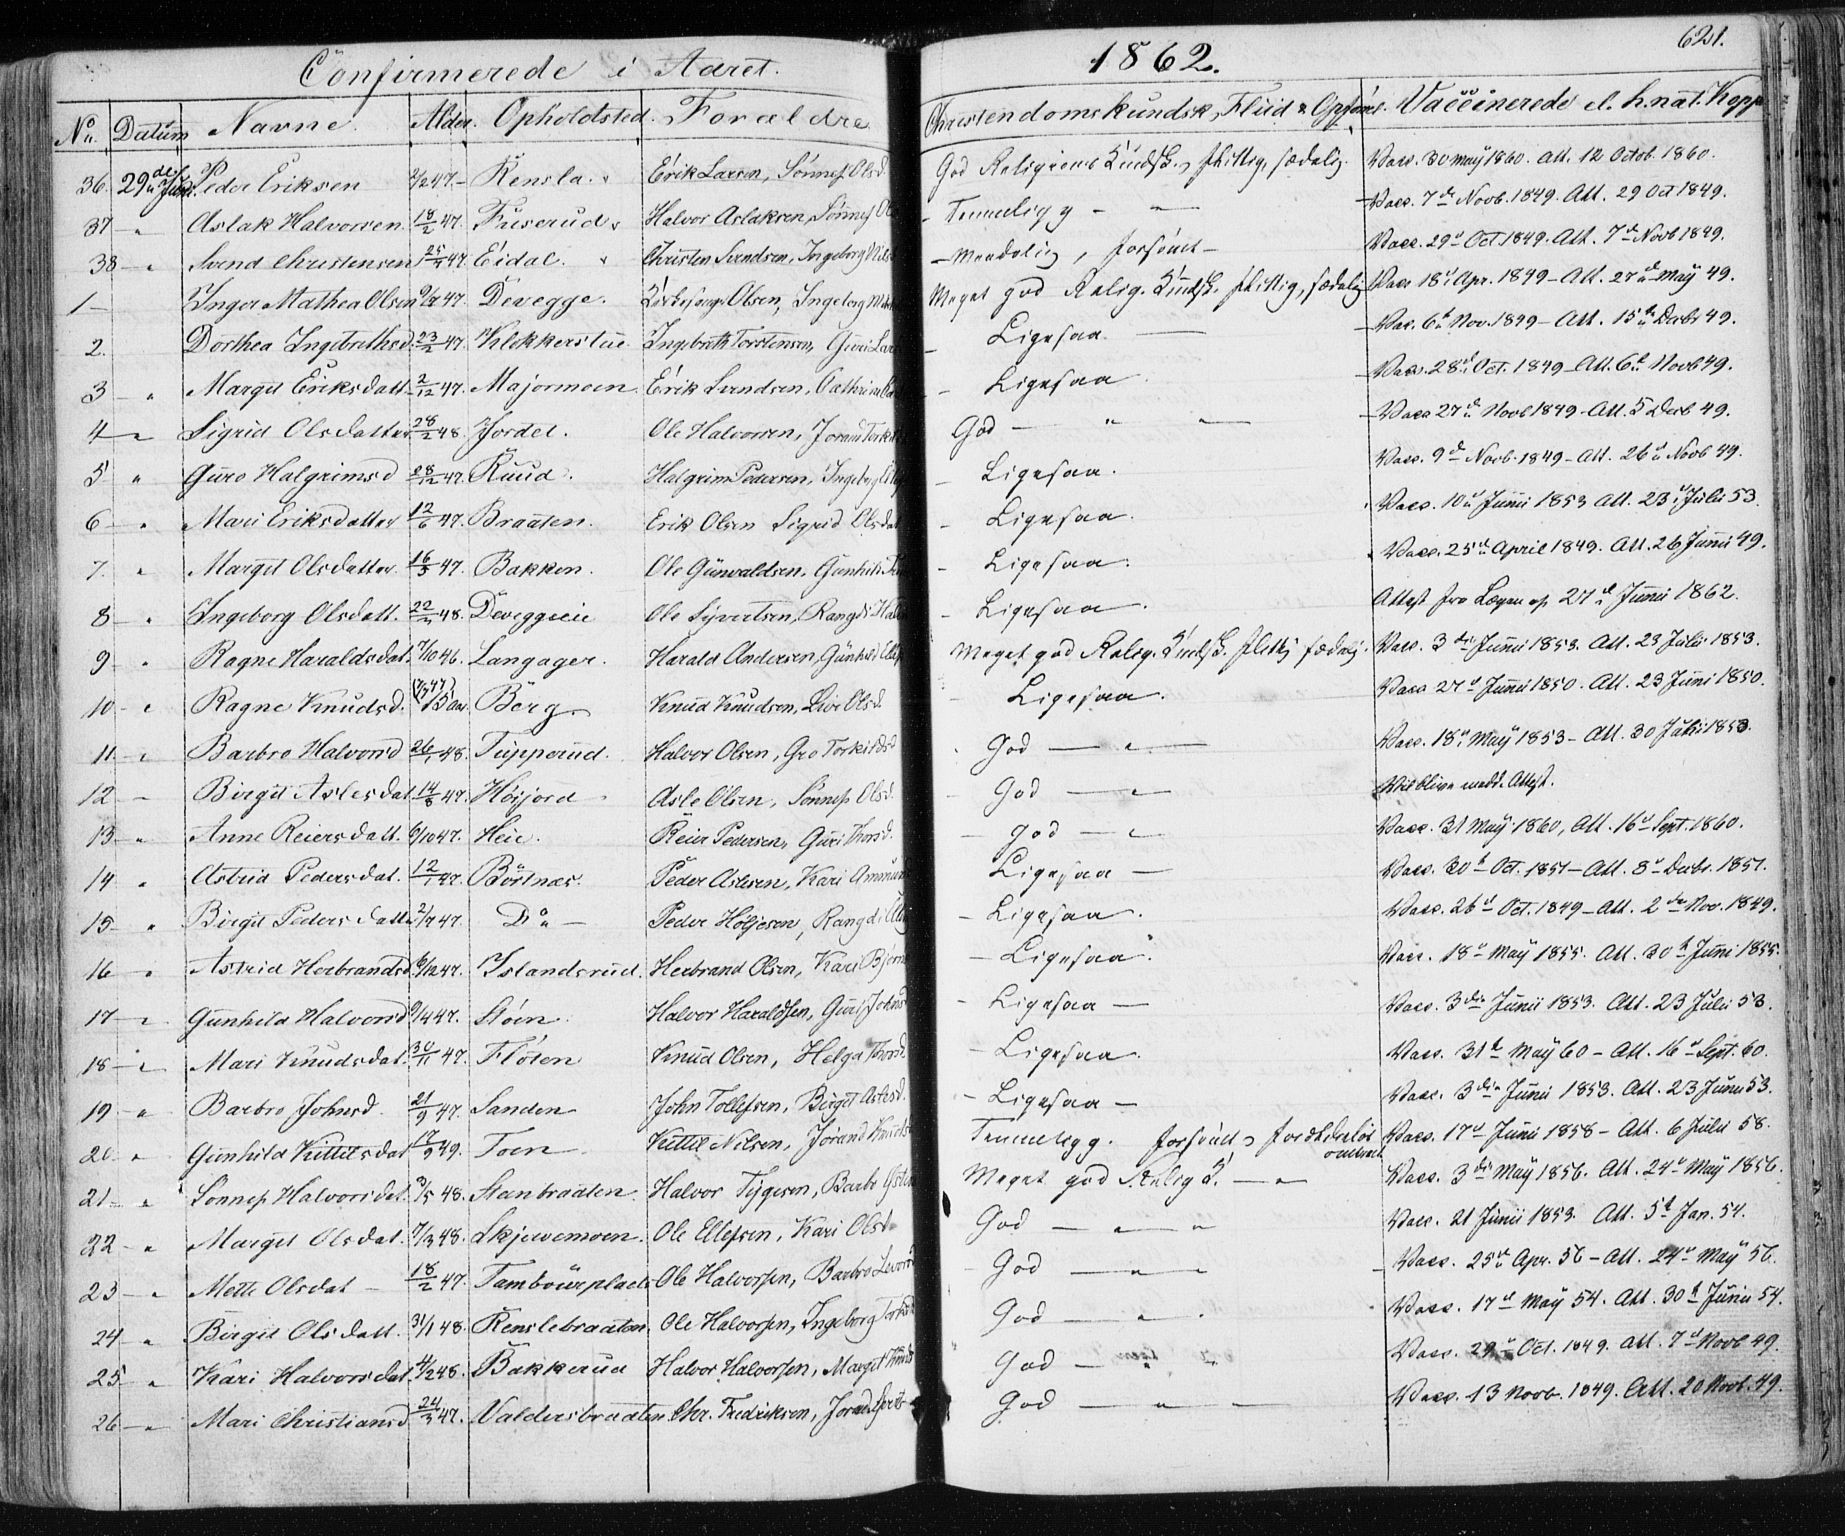 Confirmerede i Aaret 1862. 621.
No. Datum Navne. Alder. Opholdsted. Forældre Christendomskundsk, Fliid & Opførs. Vaccinerede el. h. nat. Kopp
36. 29de Juni Peder Eriksen 2/2 47. Rensla. Erik Larsen, Sønnef Olsd. God Religions Kundsk., flittig, sædelig. Vacc. 30 May 1860. Att. 12 Octob. 1860.
37 - " Aslak Halvorsen 18/2 47. Fuserud Halvor Aslaksen, Sønnef - Temmelig g - " - Vacc. 7de Novb. 1849. Att. 29 Oct 1849.
38 - " Svend Christensen 25/4 47. Eidal. Christen Svendsen, Ingeborg Nils - Maadelig, forsømt - Vacc. 29de Oct 1849. Att. 7de Novb 1849.
1 - Inger Mathea Olsen 9/7 47. Devegge. Olsen, Ingeborg Meget god Relig. Kundsk. flittig, sædelig Vacc 18de Apr. 1849 - Att. 27de May 49.
2. Dorthea Ingebrethsd. 23/2 47. Klokkerstue Ingebreth Torstensen, Guri Lar - Ligesaa - Vac. 6te Nov. 1849 - Att. 15de Decbr 49.
3 - " Margit Eriksdatt. 2/12 47. Majormoen Erik Svendsen, Cathrina - Ligesaa - Vac. 28de Oct. 1849 - Att. 6te Novb 49.
4 - " Sigrid Olsdatter 28/2 48. Jordet. Ole Halvorsen, Jorand Torkel God - " - " - Vacc 27de Novb 1849 - Att. 5 Decb 49.
5 " Guro Halgrimsd 28/12 47. Ruud. Halgrim Pedersen, Ingeborg - Ligesaa. Vacc. 9de Novb. 1849 - Att. 26de Novb 49.
6 - " Mari Eriksdatter 12/6 47. Braaten. Erik Olsen Sigrid Olsdat - Ligesaa. Vacc. 10de Junii 1853 Att. 23de Julii 53.
7. " Margit Olsdatter 16/5 47. Bakken. Ole Gunvaldsen, Gunhild - Ligesaa. Vacc. 25de April 1849. Att. 26 Junii 49.
8 " Ingeborg Olsdatt. 48. Deveggeeie Ole Syvertsen, Rangdi Hal - Ligesaa. Attest fra Lægen af 27de Junii 1862.
9 " Ragne Haraldsdat. 7/10 46. Langager. Harald Andersen, Gunhild Meget god Relig. Kundsk. flittig sædelig. Vacc. 3die Junii 1853. Att. 23 Julii 1853.
10 - " Ragne Knudsd. 15 aar Berg. Knud Knudsen, Live Olsd. - Ligesaa. Vacc 27de Junii 1850. Att. 23 Juni 1850.
11. " Barbro Halvorsd 26/1 48. Tupperud. Halvor Olsen, Gro Torkildsd God - " - Vacc. 18de May 1853 - Att. 30 1853.
12 - Birgit Aslesdat 14/8 47. Høijord Asle Olsen, Sønnef Olsd. God - " Vil blive medd. Attest.
13 - " Anne Reiersdatt. 6/10 47. Heie. Reier Pedersen, Guri Thorsd. - god - " Vacc. 31 May 1860, Att. 16de Sept. 1860.
14 " Astrid Pedersdat. 12/1 47. Börtnæs. Peder Aslesen, Kari Ammun - Ligesaa - Vacc. 30te Oct. 1851 - Att. 8de Decbr. 1851.
15 - " Birgit Pedersdatt 2/7 47 Do - Peder Holjesen, Rangdi - Ligesaa. Vacc. 26de Oct. 1849 - Att. 2den Nov. 1849.
16 " Astrid Herbrandsd 6/12 47. Islandsrud. Herbrand Olsen, Kari Bjørn - Ligesaa. Vacc. 18de May 1855. Att. 30te Juni 1855.
17 - " Gunhild Halvorsd 9/4 47. Støen. Halvor Haraldsen, Guri Johnsd - Ligesaa - Vacc. 3die Junii 1853. Att. 23 Julii 53.
18 - " Mari Knudsdat. 30/11 47. Fløten Knud Olsen, Helga Thorsd. - Ligesaa. Vacc. 31te May 60 - Att. 16de Sept. 60.
19 - " Barbro Johnsd. 21/9 47. Sanden John Tollefsen, Birgit Aslesd. - Ligesaa - Vacc. 3die Junii 1853. Att. 23 Junii 53.
20. " Gunhild Kittilsdat 49. Toen Kittil Nilsen, Jørand Knuds Temmelig g. forsømt, Vacc. 17de Junii 1858 - Att. 6 Julii 58.
21 - " Sønnef Halvorsdat. 3/5 48. Stenbraaten. Halvor Tygesen, Barbro Østen Meget god Relig K. - " Vacc. 3die May 1856. Att. 24de May 1856.
22 - " Margit Olsdat. 7/3 48. Skjervemoen. Ole Ellefsen, Kari Olsd God - " - " Vacc. 21 Junii 1853. Att. 5te Jan. 54.
23 - " Mette Olsdat - 18/2 47. Tambourplads Ole Halvorsen, Barbro God - " - " Vacc. 25de Apr. 56 - Att. 24de May 56.
24 " Birgit Olsdatt. 31/1 48. Renslebraaten. Ole Halvorsen, Ingeborg Torkild God - " . Vacc. 17de May 54. Att. 30te Junii 54.
25 - " Kari Halvorsdat. 4/2 48. Bakkerud Halvor Halvorsen, Margit Knuds God - " " Vacc. 29de Oct. 1849. Att. 7de Novb 49.
26 - " Mari Christiansd 24/3 47. Valdersbraaten Chr. Fredriksen, Jorand God - " " - Vacc. 13 Novb. 1849. Att. 20 Novb. 49.